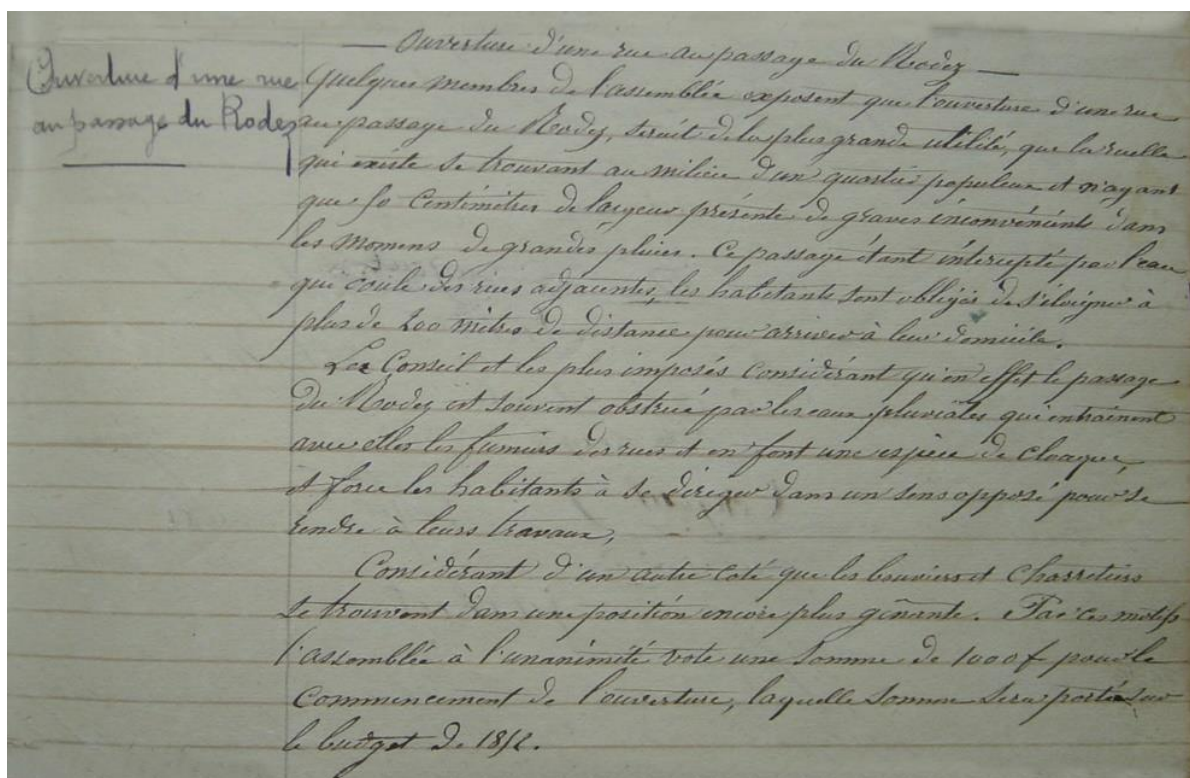 Ouverture d'une rue
au passage du Rodez
— Ouverture d'une rue au passage du Rodez —
Quelques membres de l'assemblée exposent que l'ouverture d'une rue
au passage du Rodez, serait de la plus grande utilité, que la ruelle
qui existe se trouvant au milieu d'un quartier populeux et n'ayant
que 50 Centimètres de largeur présente de graves inconvénients dans
les momens de grandes pluies. Ce passage étant intercepté par l'eau
qui coule des rues adjacentes, les habitants sont obligés de s'éloigner à
plus de 200 mètres de distance pour arriver à leur domicile.
Le Conseil et les plus imposés Considérant qu'en effet le passage
du Rodez est souvent obstrué par les eaux pluviales qui entrainent
avec elles les fumiers des rues et en font une espèce de Cloaque,
et force les habitants à se diriger dans un sens opposé pour se
rendre à leurs travaux,
Considérant d'un autre coté que les bouviers et Charretiers
se trouvent dans une position encore plus gênante. Par ces motifs
l'assemblée à l'unanimité vote une somme de 1000 f pour le
Commencement de l'ouverture, laquelle somme sera portée sur
le budget de 1852.